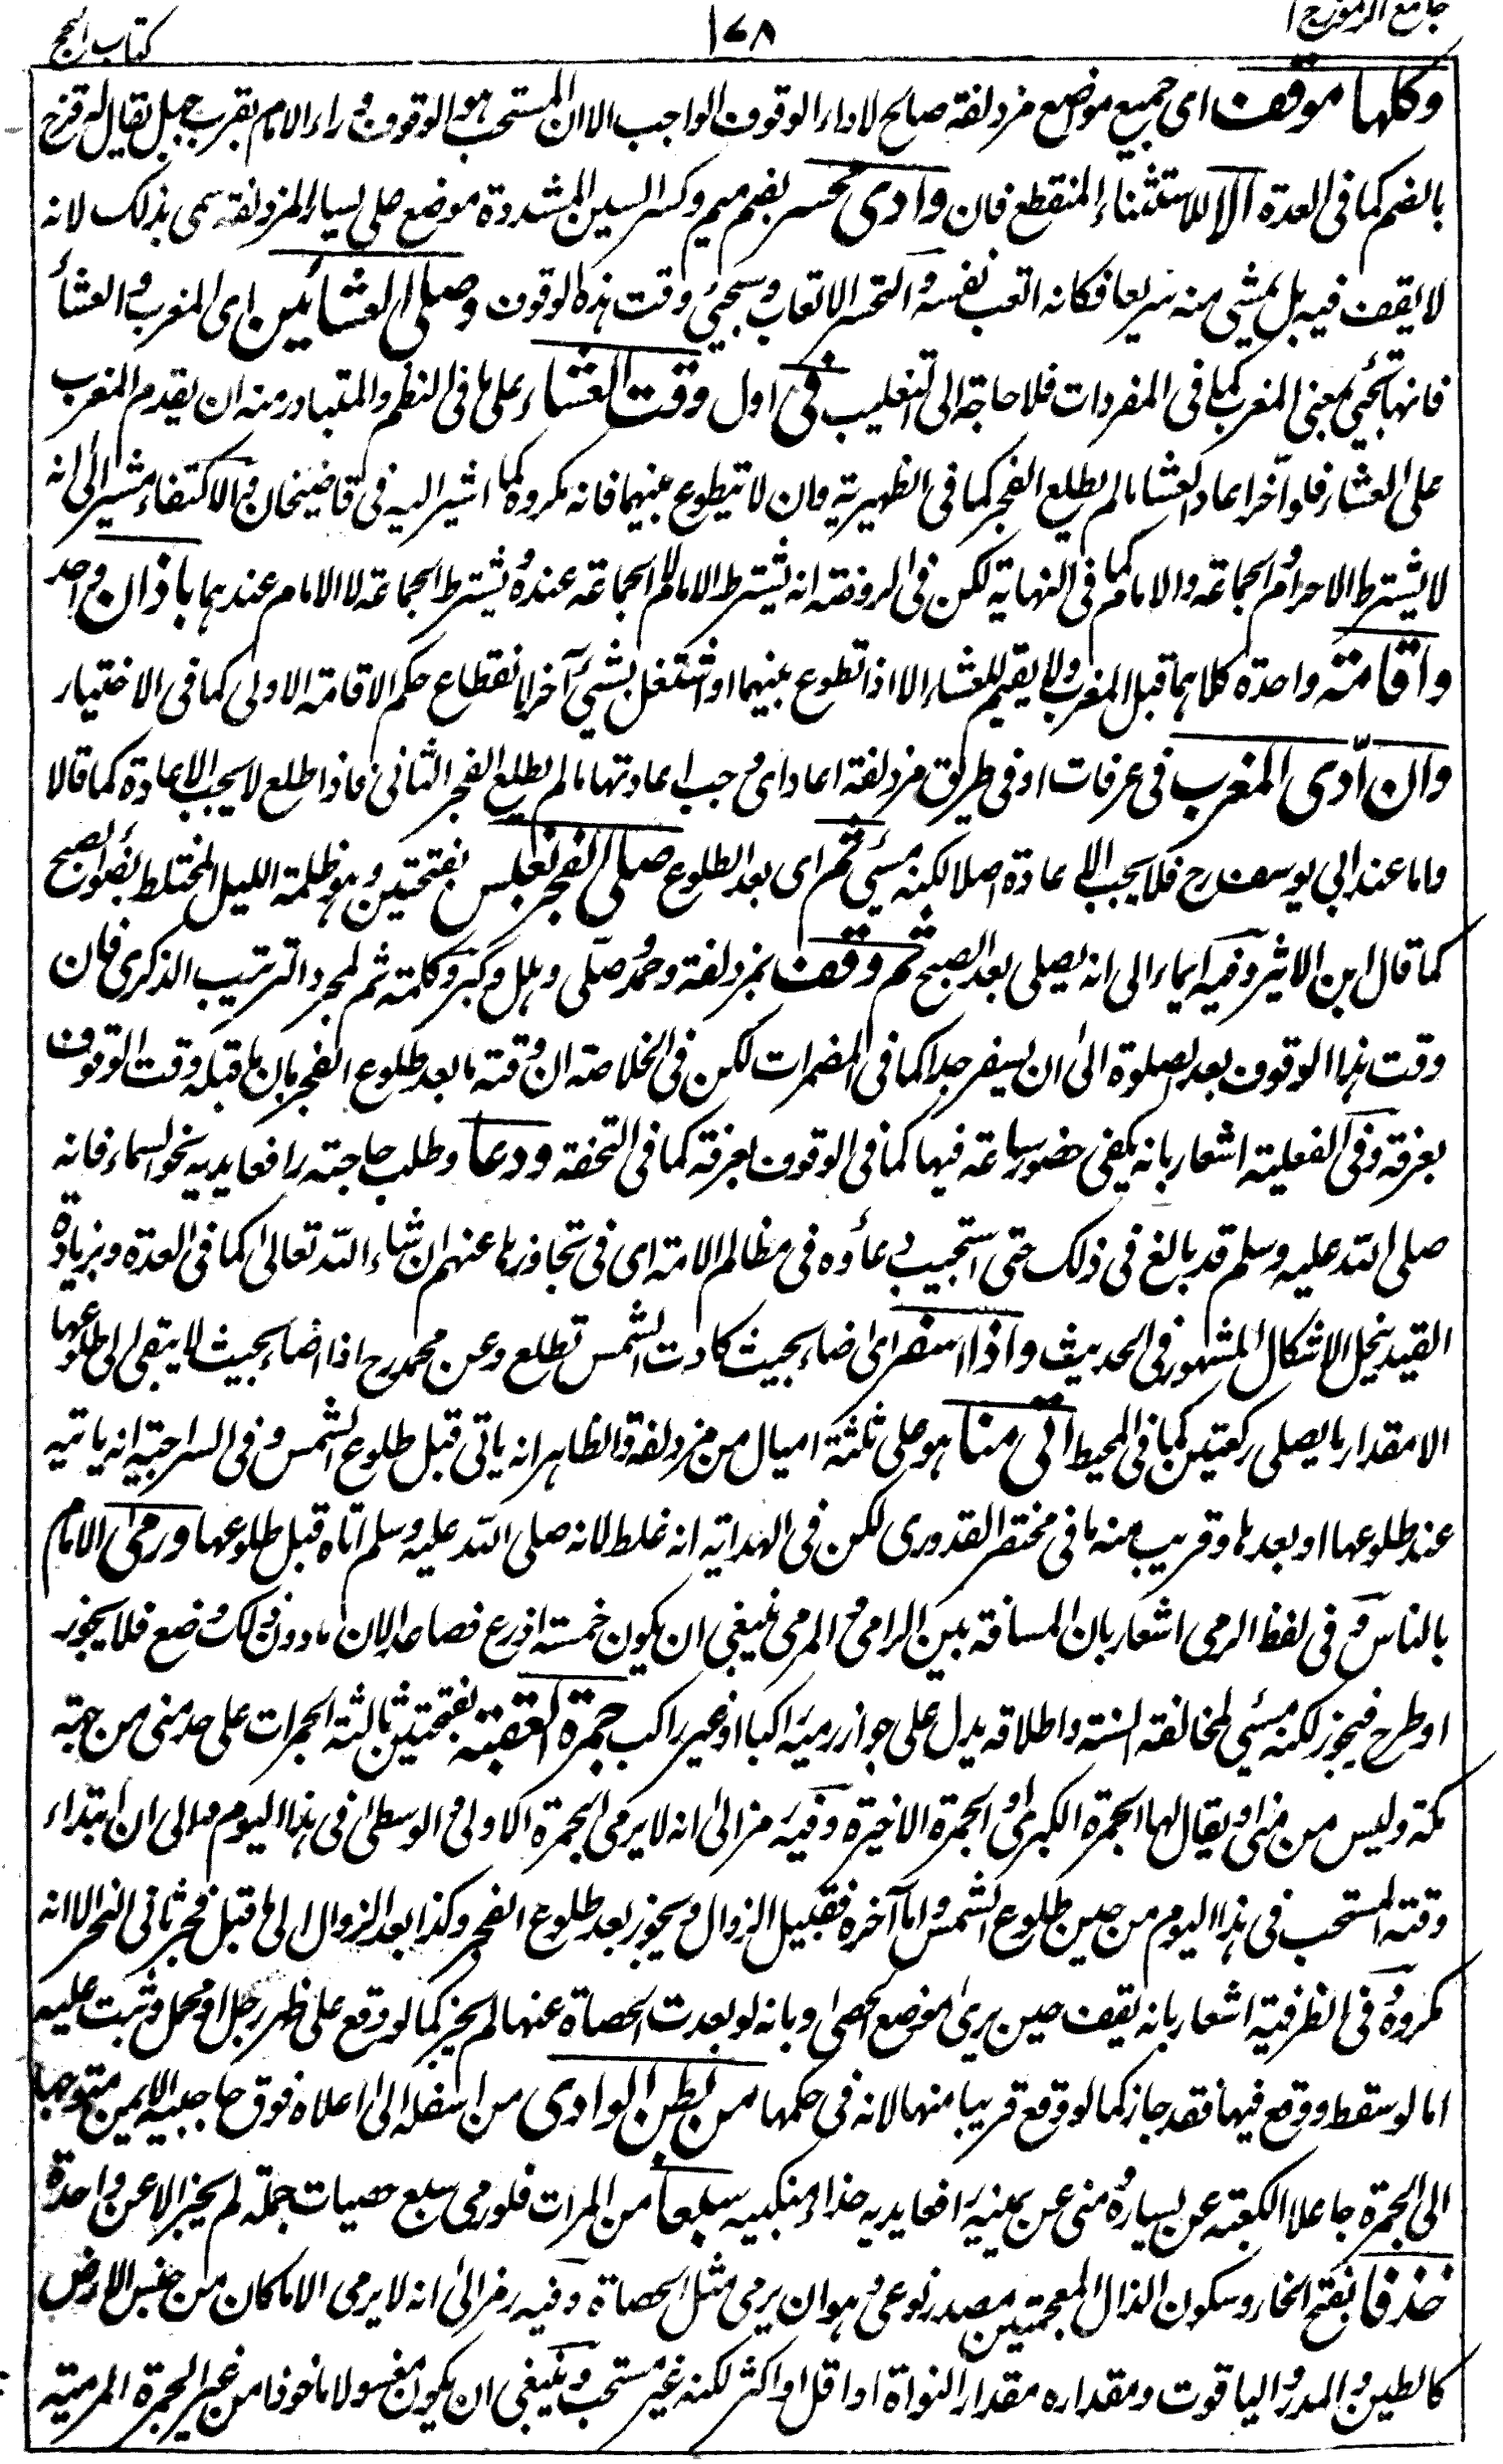 جامع الرموز ج ا ١٧٨ كتاب الحج
وكلها موقف اى جميع موضع مزدلفة صالح لاداء الوقوف الواجب الا ان المستحب هو الوقوف وراء الامام بقرب جبل يقال له قزح
بالضم كما فى العدة الا للاستثناء المنقطع فان وادى محسر بضم ميم وكسر السين المشددة موضع على يسار المزدلفة سمى بذلك لانه
لا يقف فيه بل يمشى منه سريعا فكانه اتعب نفسه والتحسر الاتعاب وسيجئ وقت هذه الوقوف وصلى العشائين اى المغرب والعشاء
فانها تجئ بمعنى المغرب كما فى المفردات فلا حاجة الى التغليب فى اول وقت العشاء على ما فى النظم والمتبادر منه ان يقدم المغرب
على العشاء فلو أخرا عاد العشاء ما لم يطلع الفجر كما فى الظهيرية وان لا يتطوع بينهما فانه مكروه كما اشير اليه فى قاضيخان والاكتفاء مشير الى انه
لا يشترط الاحرام والجماعة والامام كما فى النهاية لكن فى الروضة انه يشترط الامام لا الجماعة عنده ويشترط الجماعة لا الامام عندهما باذان واحد
واقامة واحدة كلاهما قبل المغرب ولا يقيم للعشاء الا اذا تطوع بينهما او اشتغل بشئ آخر لانقطاع حكم الاقامة الاولى كما فى الاختيار
وان ادّى المغرب فى عرفات او فى طريق مزدلفة اعاد اى وجب اعادتها ما لم يطلع الفجر الثانى فاذا طلع لا يجب الاعادة كما قالا
واما عند ابى يوسف رح فلا يجب الاعادة اصلا لكنه مسئ ثم اى بعد الطلوع صلى الفجر بغلس بفتحتين وهو ظلمة الليل المختلط بضوء الصبح
كما قال ابن الاثير وفيه ايماء الى انه يصلى بعد الصبح ثم وقف بمزدلفة وحمد وصلّى وهلل وكبر وكلمة ثم لمجرد الترتيب الذكرى فان
وقت هذا الوقوف بعد الصلوة الى ان يسفر جدا كما فى المضمرات لكن فى الخلاصة ان وقته ما بعد طلوع الفجر بان ما قبله وقت الوقوف
بعرفة وفى الفعلية اشعار بانه يكفى حضور ساعة فيها كما فى الوقوف بعرفة كما فى التحفة ودعا وطلب حاجته رافعا يديه نحو السماء فانه
صلى الله عليه وسلم قد بالغ فى ذلك حتى استجيب دعاؤه فى مظالم الامة اى فى تجاوزها عنهم ان شاء الله تعالى كما فى العدة وبزيادة
القيد ينحل الاشكال المشهور فى الحديث واذا اسفر اى ضاء بحيث كادت الشمس تطلع وعن محمد رح اذا اضاء بحيث لا يبقى الى طلوعها
الا مقدار ما يصلى ركعتين كما فى المحيط اتى منا هو على ثلثة اميال من مزدلفة والظاهر انه ياتى قبل طلوع الشمس وفى السراجية انه ياتيه
عند طلوعها او بعدها وقريب منه ما فى مختصر القدورى لكن فى الهداية انه غلط لانه صلى الله عليه وسلم اتاه قبل طلوعها ورمى الامام
بالناس وفى لفظ الرمى اشعار بان المسافة بين الرامى والمرمى ينبغى ان يكون خمسة اذرع فصاعدا لان ما دون ذلك وضع فلا يجوز
او طرح فيجوز لكنه مسئ لمخالفة السنة واطلاقه يدل على جواز رميه راكبا او غير راكب جمرة العقبة بفتحتين ثالثة الجمرات على حد منى من جهة
مكة وليس من منى ويقال لها الجمرة الكبرى والجمرة الاخيرة وفيه رمز الى انه لا يرمى الجمرة الاولى والوسطى فى هذا اليوم والى ان ابتداء
وقته المستحب فى هذا اليوم من حين طلوع الشمس واما آخره فقبيل الزوال ويجوز بعد طلوع الفجر وكذا بعد الزوال الى ما قبل فجر ثانى النحر الا انه
مكروه وفى الظرفية اشعار بانه يقف حين يرى موضع الحصى وبانه لو بعدت الحصاة عنها لم يجز كما لو وقع على ظهر رجل او محمل وثبت عليه
اما لو سقط ووقع فيها فقد جاز كما لو وقع قريبا منها لانه فى حكمها من بطن الوادى من اسفله الى اعلاه فوق حاجبيه الايمن متوجها
الى الجمرة جاعلا الكعبة عن يساره ومنى عن يمينه رافعا يديه حذاء منكبيه سبعا من المرات فلو رمى سبع حصيات جملة لم يجز الا عن واحدة
خذفا بفتح الخاء وسكون الذال المعجمتين مصدر نوعى وهو ان يرمى مثل الحصاة وفيه رمز الى انه لا يرمى الا ما كان من جنس الارض
كالطين والمدر والياقوت ومقداره مقدار النواة او اقل او اكثر لكنه غير مستحب وينبغى ان يكون مغسولا ماخوذا من غير الجمرة المرمية